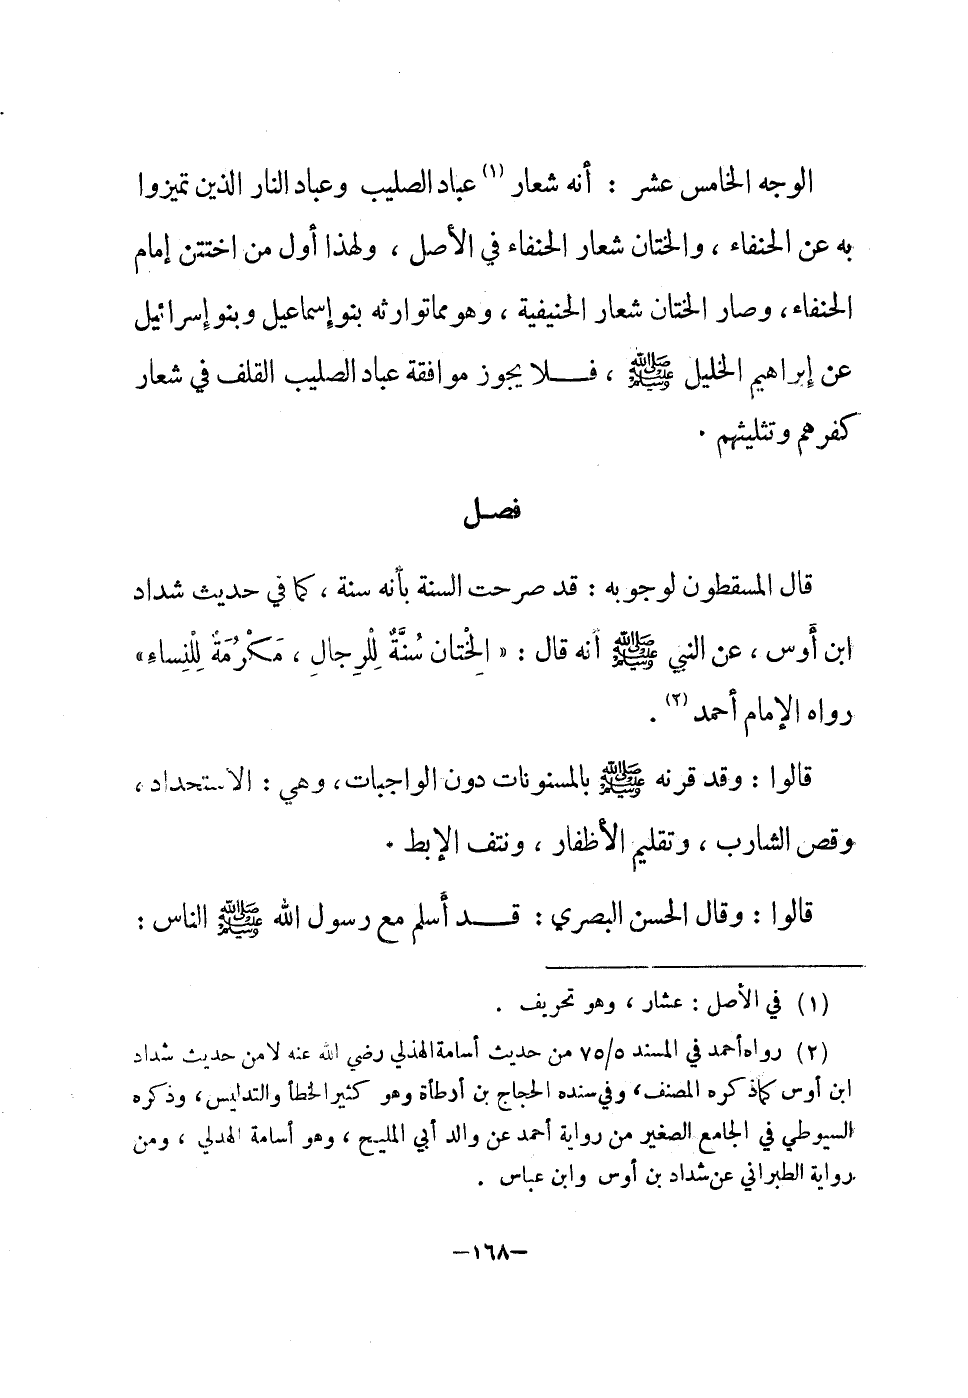 الوجه الخامس عشر : أنه شعار (١) عباد الصليب وعباد النار الذين تميزوا
به عن الحنفاء ، والختان شعار الحنفاء في الأصل ، ولهذا أول من اختتن إمام
الحنفاء، وصار الختان شعار الحنيفية ، وهو مما توارثه بنو إسماعيل وبنو إسرائيل
عن إبراهيم الخليل ﷺ ، فلا يجوز موافقة عباد الصليب القلف في شعار
كفرهم وتثليثهم .
فصل
قال المسقطون لوجوبه : قد صرحت السنة بأنه سنة ، كما في حديث شداد
ابن أَوس ، عن النبي ﷺ أنه قال : « الِختان سُنَّةٌ لِلْرِجالِ ، مَكْرُمَةٌ لِلْنِساءِ »
رواه الإمام أحمد (٢) .
قالوا : وقد قرنه ﷺ بالمسنونات دون الواجبات ، وهي : الاستحداد ،
وقص الشارب ، وتقليم الأظفار ، ونتف الإبط .
قالوا : وقال الحسن البصري : قد أَسلم مع رسول الله ﷺ الناس :
(١) في الأصل : عشار ، وهو تحريف .
(٢) رواه أحمد في المسند ٧٥/٥ من حديث أسامة الهذلي رضي الله عنه لا من حديث شداد
ابن أوس كما ذكره المصنف، وفي سنده الحجاج بن أرطأة وهو كثير الخطأ والتدليس، وذكره
السيوطي في الجامع الصغير من رواية أحمد عن والد أبي المليح ، وهو أسامة الهدلي ، ومن
رواية الطبراني عن شداد بن أوس وابن عباس .
–١٦٨–